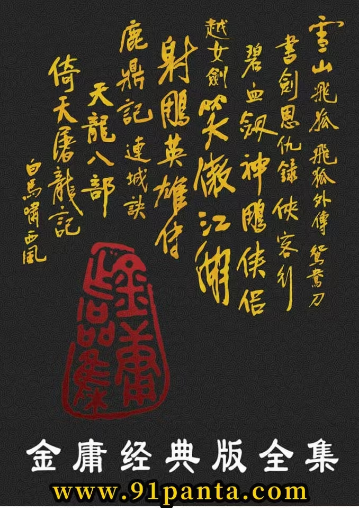 雪山飛狐 飛狐外傳 鴛鴦刀
書劍恩仇錄 俠客行
碧血劍 神鵰俠侶
越女劍 笑傲江湖
射鵰英雄傳
鹿鼎記 連城訣
天龍八部
倚天屠龍記
白馬嘯西風
金庸
品集
金庸经典版全集
www.91panta.com